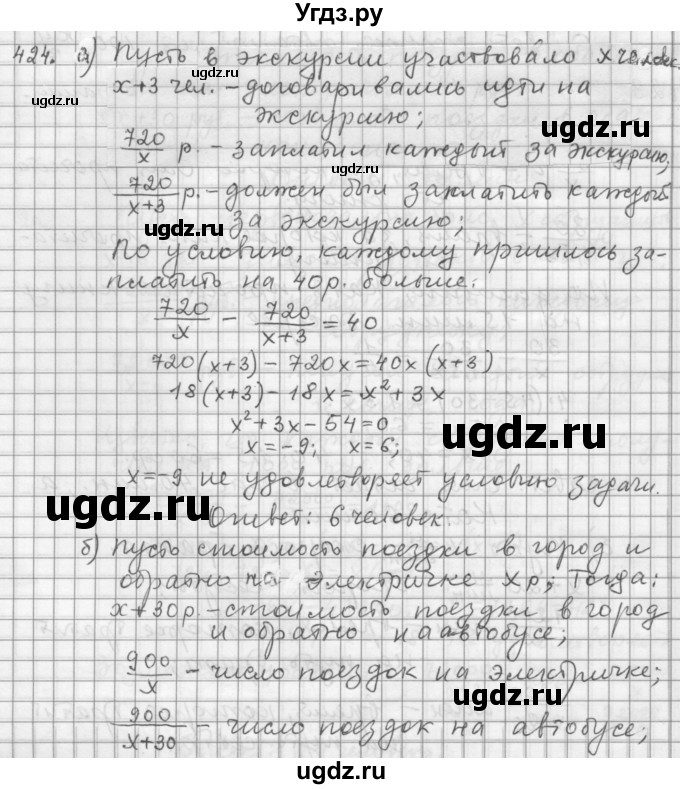 Угдз.ру
424. а) Пусть в экскурсии участвовало x человек.
x+3 чел. – договаривались идти на
экскурсию;
720/x р. – заплатил каждый за экскурсию,
720/(x+3) р. – должен был заплатить каждый
за экскурсию;
По условию, каждому пришлось за-
платить на 40р. больше:
720/x – 720/(x+3) = 40
720(x+3) – 720x = 40x(x+3)
18(x+3) – 18x = x² + 3x
x² + 3x – 54 = 0
x = –9; x = 6;
x = –9 не удовлетворяет условию задачи.
Ответ: 6 человек.
б) Пусть стоимость поездки в город и
обратно на электричке x р; Тогда:
x + 30р. – стоимость поездки в город
и обратно на автобусе;
900/x – число поездок на электричке;
900/(x+30) – число поездок на автобусе;
uгдz.ru